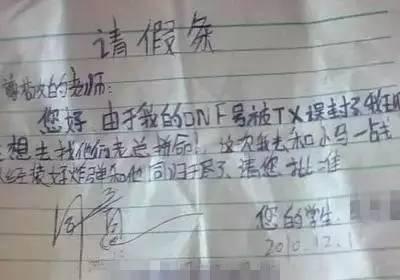 请假条
尊敬的老师:
您好 由于我的DNF号被TX误封了 我
想去找他们老总拼命! 这次我去和小马一战
经装好炸弹和他同归于尽了 请您批准
您的学生:
2010.12.1